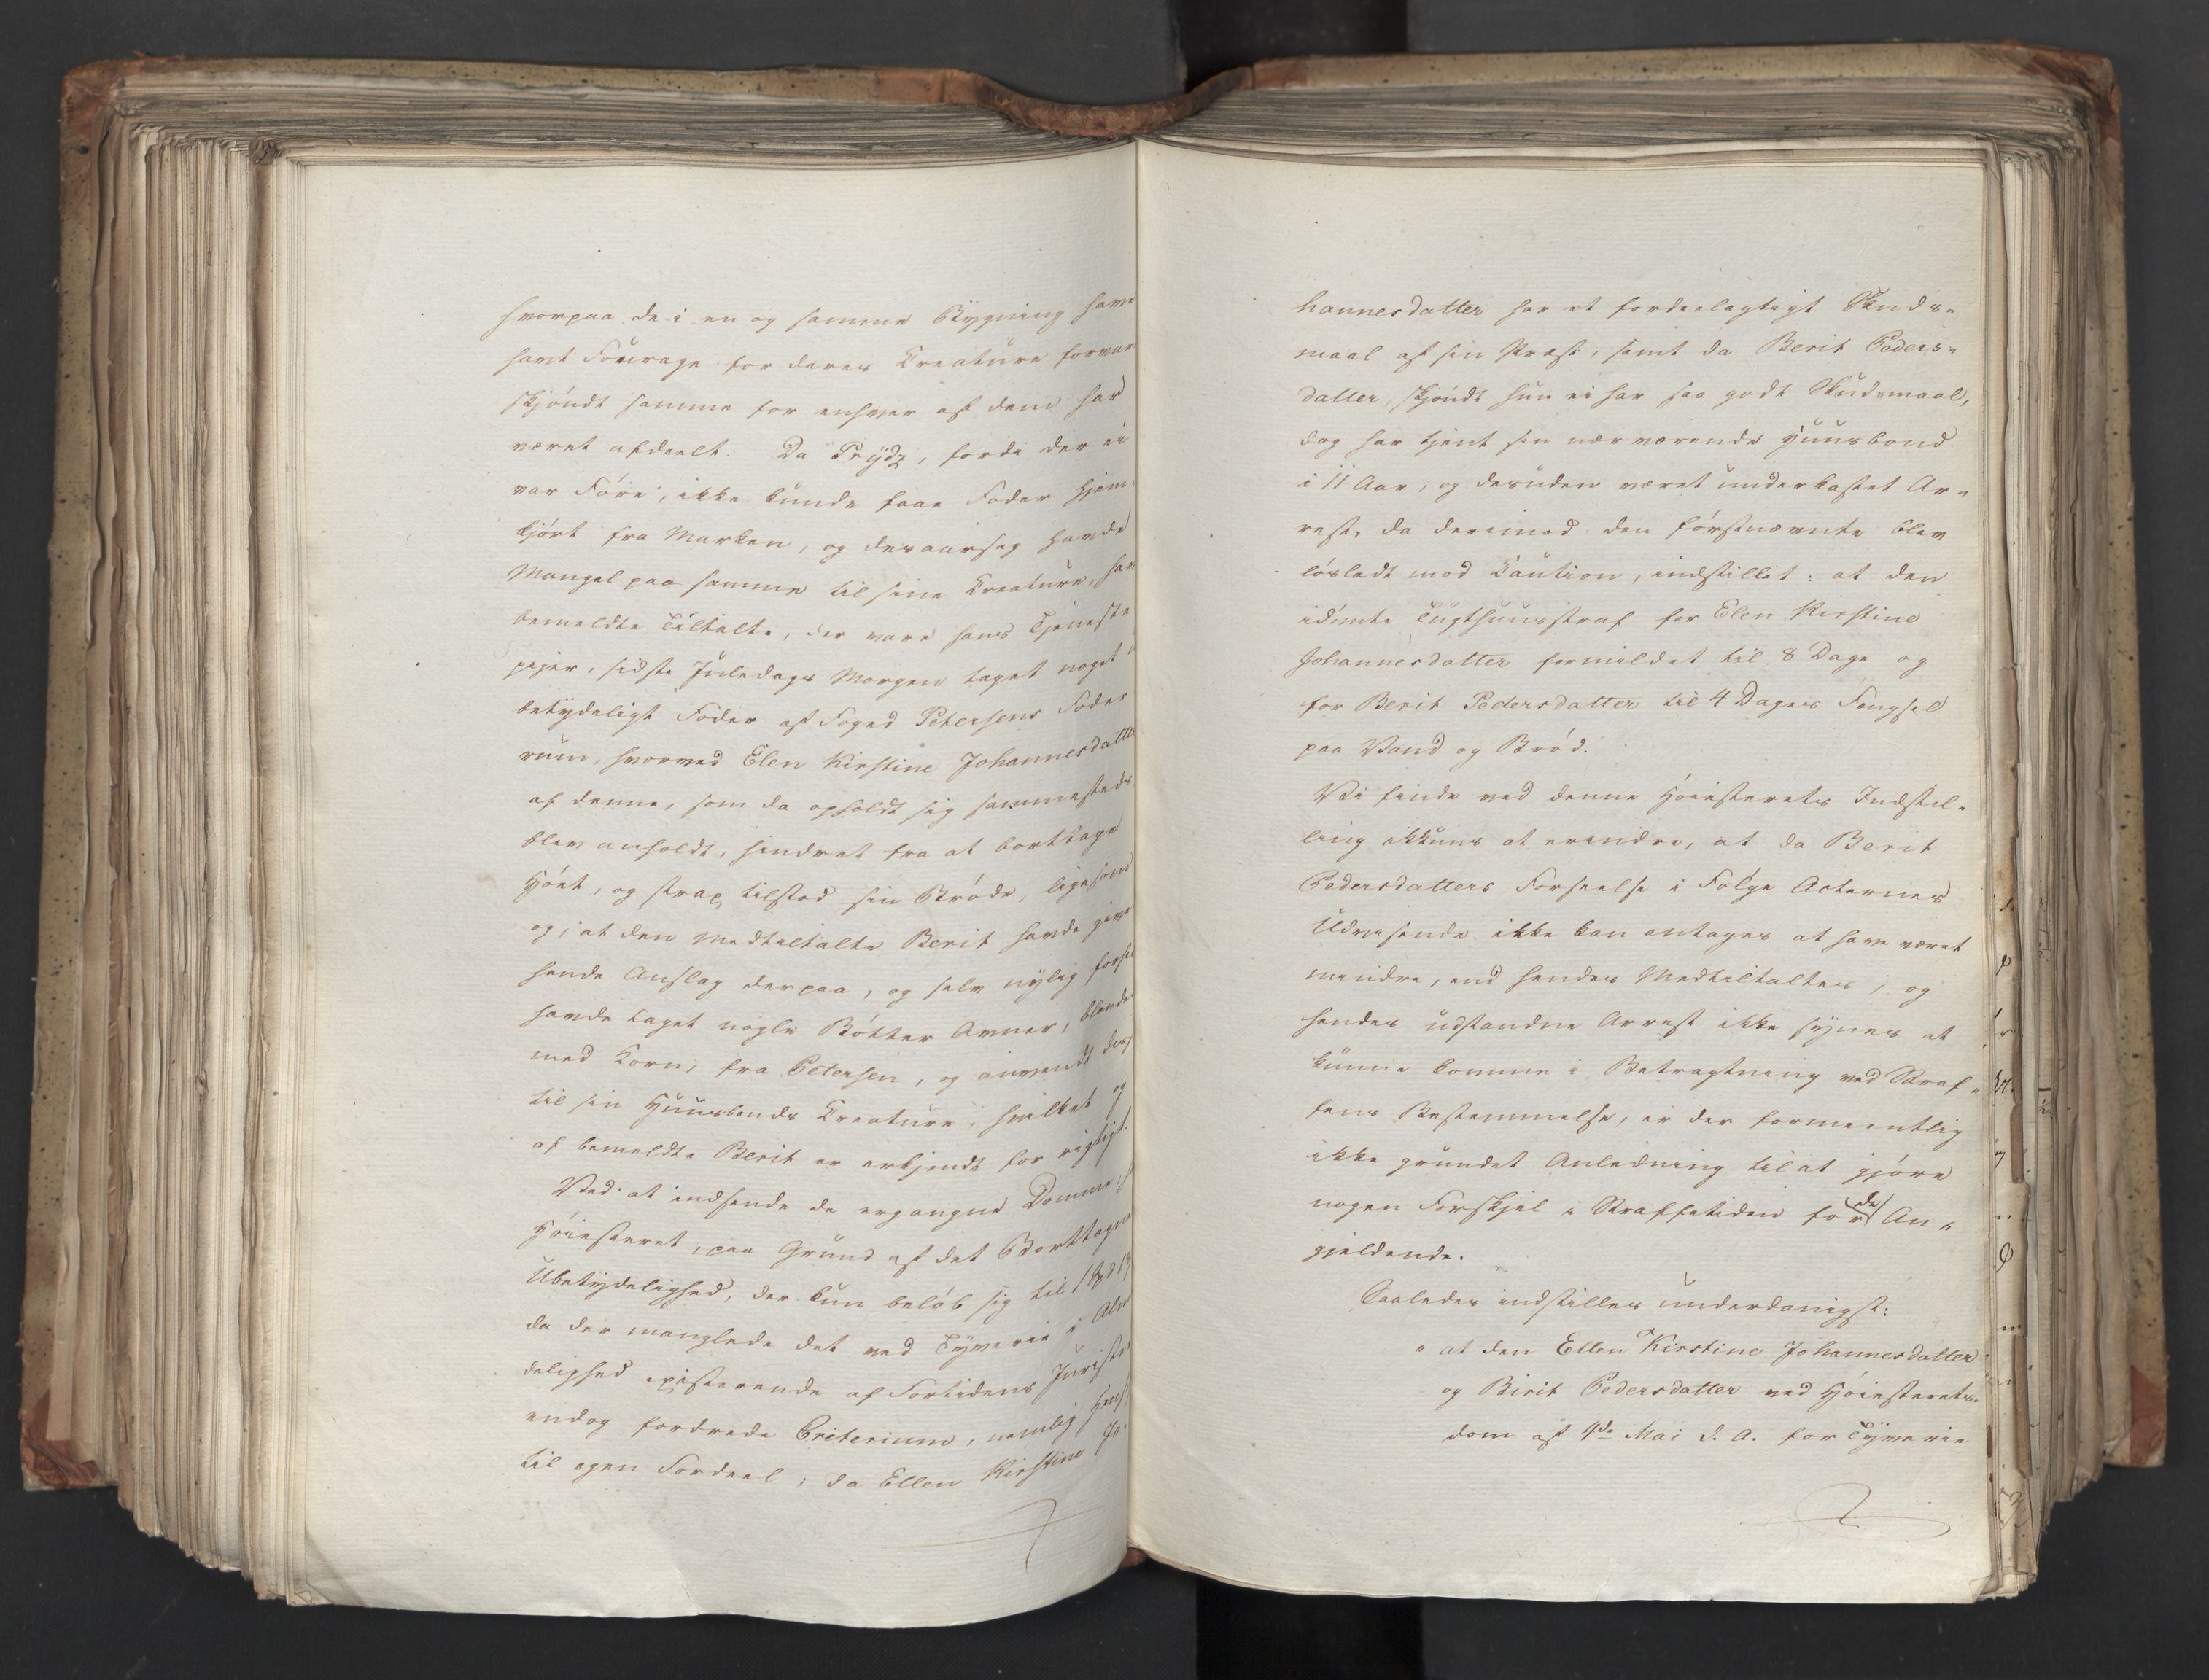 hvorpaa de i en og samme Bygning have
havt Fourage for deres Creature forvar
skjøndt samme for enhver af dem har
været afdeelt. Da Prydz, fordi der ei
var Føre, ikke kunde faae Foder hjem-
kjørt fra Marken, og desaarsag havde
Mangel paa samme til sine Creature, har
bemeldte Tiltalte, der vare hans Tjeneste
piger, sidste Juledags Morgen taget noget
betydeligt Foder af Foged Petersens Foder
rum, hvorved Elen Kirstine Johannesdatte
af denne, som da opholdt sig sammesteds
blev anholdt, hindret fra at borttage
Høet, og strax tilstod sin Brøde, ligesom
og, at den medtiltalte Berit havde give
hende Anslag derpaa, og selv nylig forh
havde taget nogle Bøtter Avner, blande
med Korn, fra Petersen, og anvendt des
til sin Huusbonds Creature, hvilket og
af bemeldte Berit er erkjendt for rigtigt.
Ved at indsende de ergangne Domme h
Høiesteret, paa Grund af det Borttagne
Ubetydelighed, der kun beløb sig til 1
da der manglede det ved Tyverie i Alm
delighed existerende af Fortidens Jurist
endog fordrede Criterium, nemlig Hens
til egen Fordeel; da Ellen Kirstine Jo-
hannesdatter har et fordeelagtigt Skuds-
maal af sin Præst, samt da Berit Peders-
datter, skjøndt hun ei har saa godt Skudsmaal,
dog har tjent sin nærværende Huusbond
i 11 Aar, og desuden været underkastet Ar-
rest, da derimod den førstnævnte blev
løsladt mod Caution, indstillet: at den
idømte Tugthuusstraf for Elen Kirstine
Johannesdatter formildet til 8 Dage og
for Berit Pedersdatter til 4 Dages Fængsel
paa Vand og Brød.
Vi finde ved denne Høiesterets Indstil-
ling ikkuns at erindre, at da Berit
Pedersdatters Forseelse i Følge Acternes
Udvisende ikke kan antages at have været
mindre, end hendes Medtiltaltes, og
hendes udstandne Arrest ikke synes at
kunne komme i Betragtning ved Straf-
fens Bestemmelse, er der formeentlig
ikke grundet Anledning til at gjøre
nogen Forskjel i Straffetiden for de An-
gjeldende.
Saaledes indstilles underdanigst:
" at den Ellen Kirstine Johannesdatter
og Birit Pedersdatter ved Høiesterets-
dom af 4de Mai d. A. for Tyverie